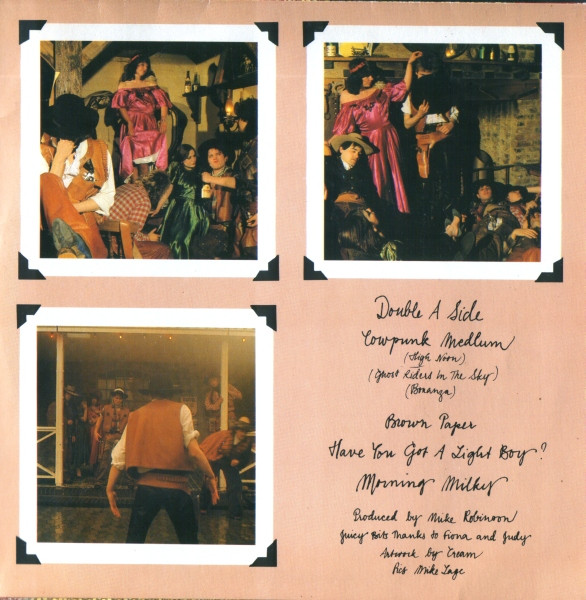 Double A Side
Cowpunk Medlum
(High Noon)
(Ghost Riders In The Sky)
(Bonanza)
Brown Paper
Have You Got A Light Boy?
Morning Milky
Produced by Mike Robinson
Juicy Bits Thanks to Fiona and Judy
Artwork by Cream
Pics Mike Lage